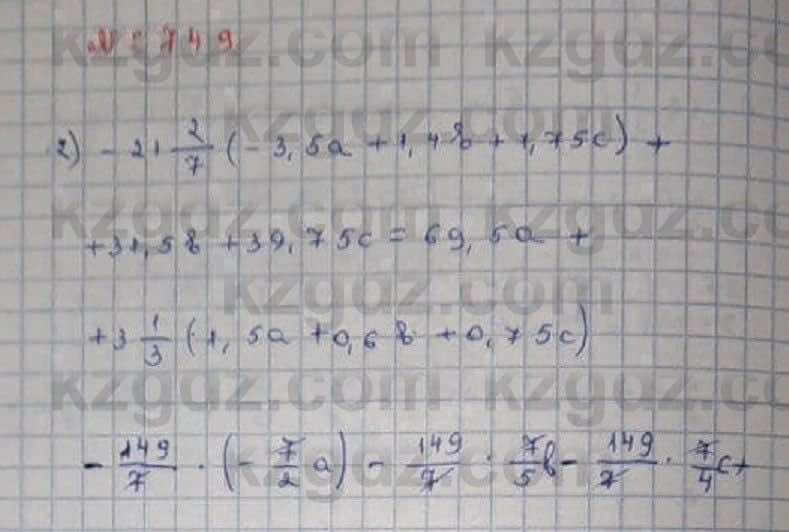 № 749
2) - 21 2/7 (-3,5a + 1,4b + 1,75c) +
+ 31,5b + 39,75c = 69,5a +
+ 3 1/3 (1,5a + 0,6b + 0,75c)
- 149/7 · (- 7/2 a) - 149/7 · 7/5 b - 149/7 · 7/4 c +
kzgdz.com kzgdz.com
kzgdz.com
kzgdz.com kzgdz.com
kzgdz.com
kzgdz.com kzgdz.com
kzgdz.com